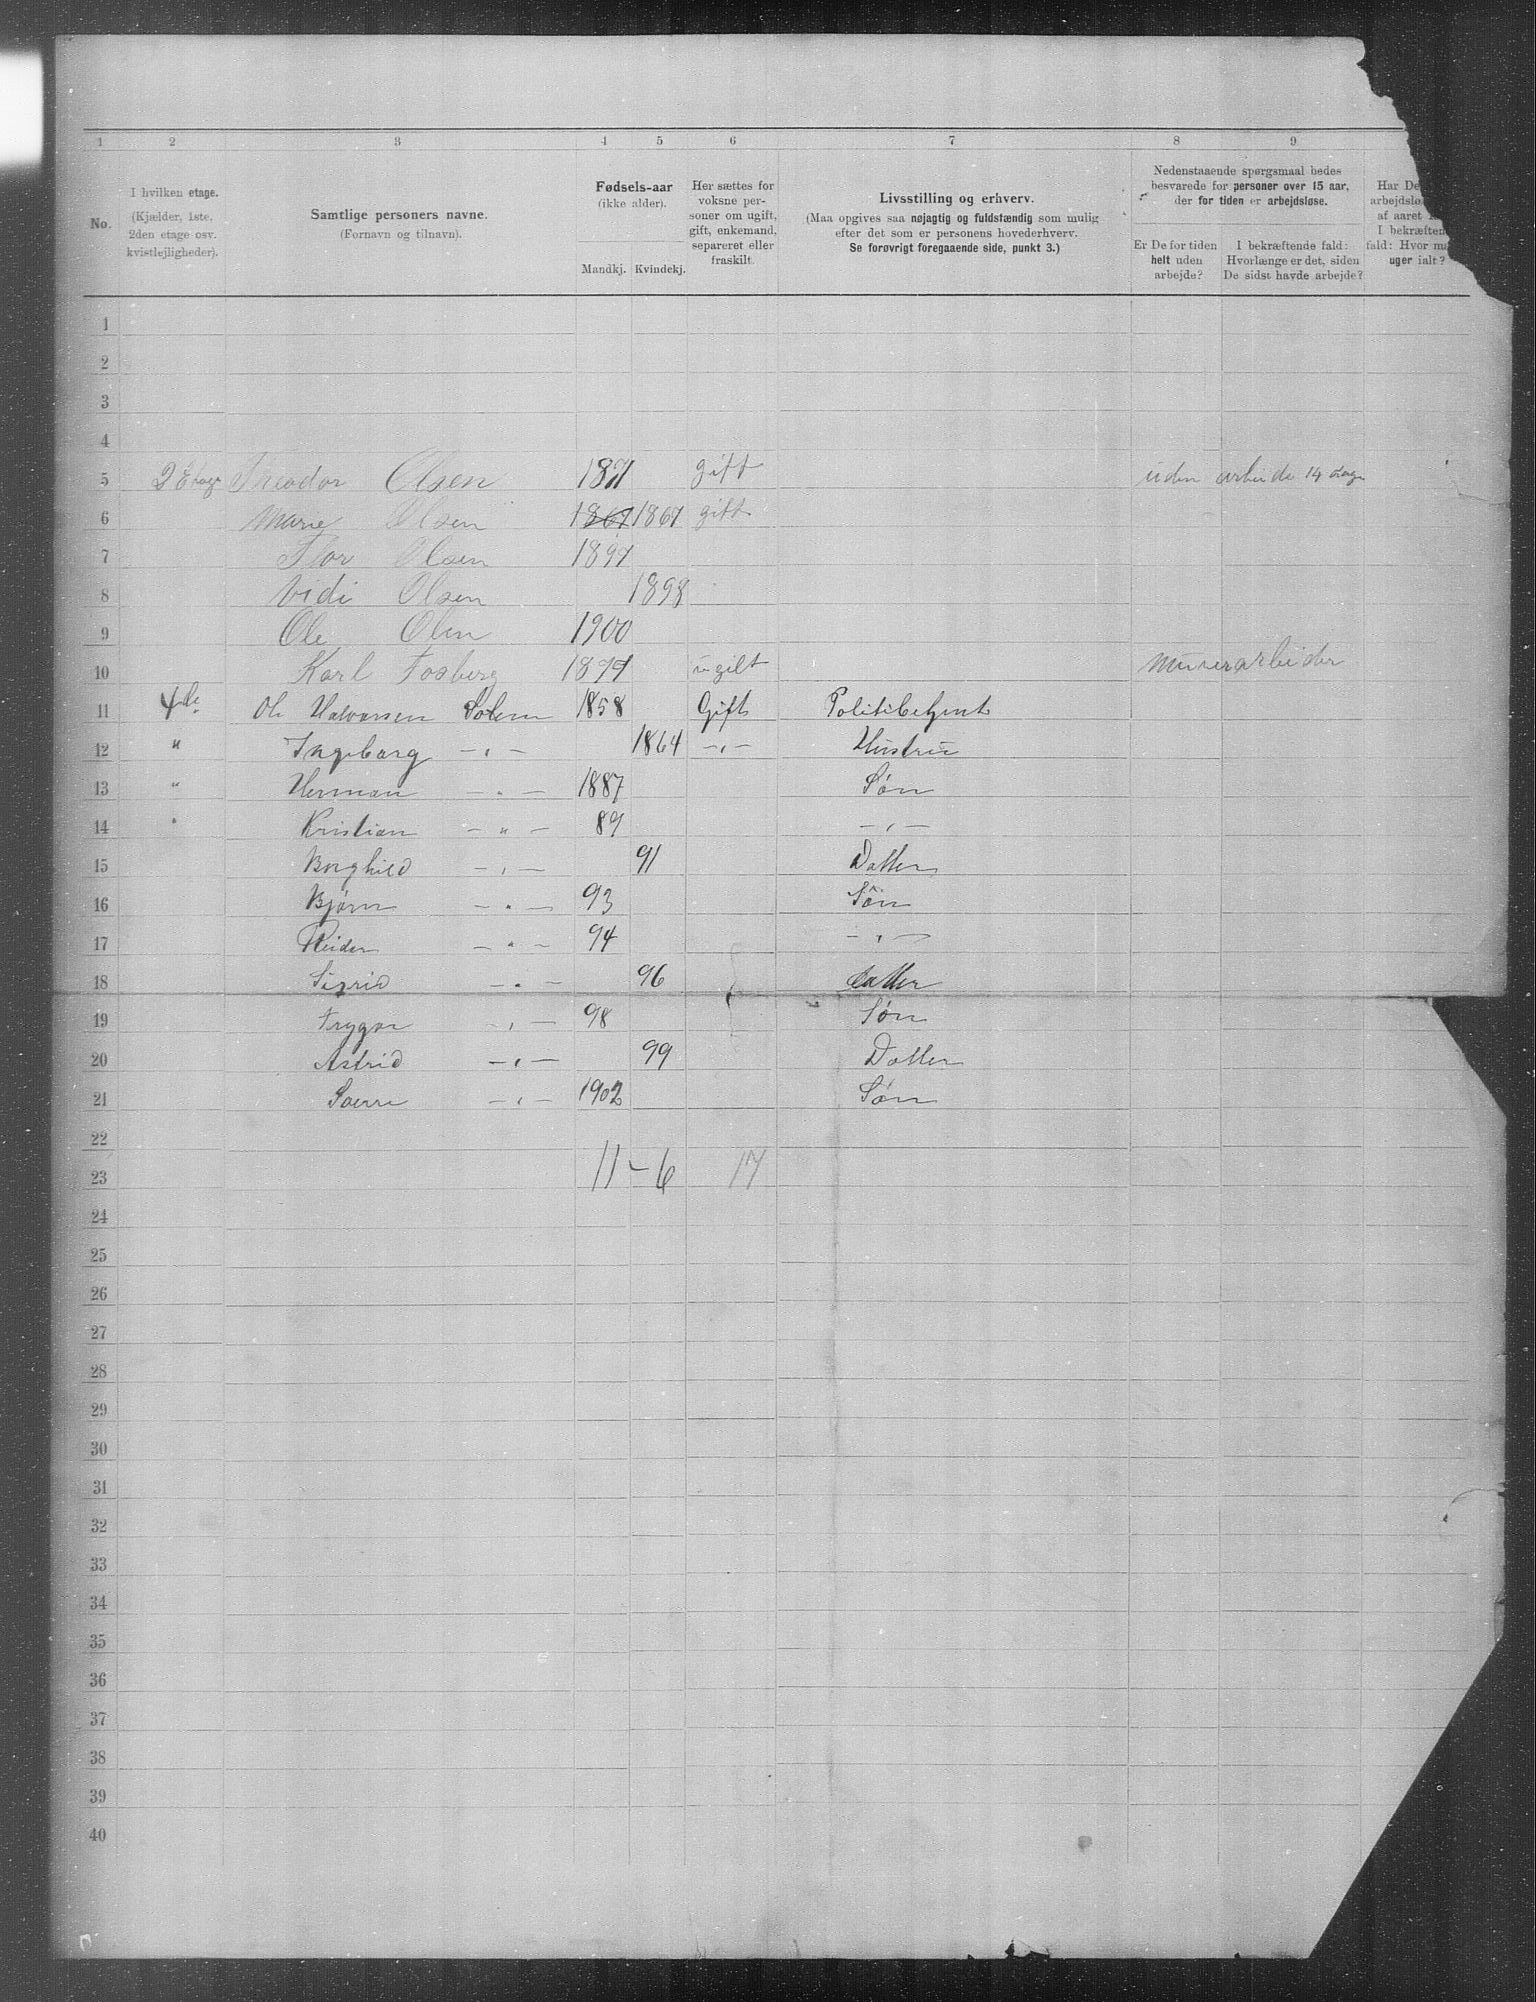 1 2 3 4 5 6 7 8 9
No.
I hvilken etage.
(Kjælder, 1ste,
2den etage osv.
kvistlejligheder).
Samtlige personers navne.
(Fornavn og tilnavn).
Fødsels-aar
(ikke alder).
Mandkj. Kvindekj.
Her sættes for
voksne per-
soner om ugift,
gift, enkemand,
separeret eller
fraskilt.
Livsstilling og erhverv.
(Maa opgives saa nøjagtig og fuldstændig som mulig
efter det som er personens hovederhverv.
Se forøvrigt foregaaende side, punkt 3.)
Nedenstaaende spørgsmaal bedes
besvarede for personer over 15 aar,
der for tiden er arbejdsløse.
Er De for tiden
helt uden
arbejde?
I bekræftende fald:
Hvorlænge er det, siden
De sidst havde arbejde?
Har De
arbejdslø
af aaret
I bekræften
fald: Hvor m
uger ialt?
1
2
3
4
5 2 Etage Theodor Olsen 1871 gift uden arbeide 14 dage
6 Marie Olsen 1867 1867 gift
7 Thor Olsen 1897
8 Vidi Olsen 1898
9 Ole Olsen 1900
10 Karl Fosberg ugift Murerarbeider
11 4de Ole Halvorsen Solem 1858 Gift Politibetjent
12 " Ingeborg -"- 1864 -"- Hustru
13 " Herman -"- 1887 Søn
14 " Kristian -"- 89 -"-
15 Borghild -"- 91 Datter
16 Bjørn -"- 93 Søn
17 Reidar -"- 94 -"-
18 Sigrid -"- 96 Datter
19 Trygve -"- 98 Søn
20 Astrid -"- 99 Datter
21 Sverre -"- 1902 Søn
22
23 11 - 6 17
24
25
26
27
28
29
30
31
32
33
34
35
36
37
38
39
40